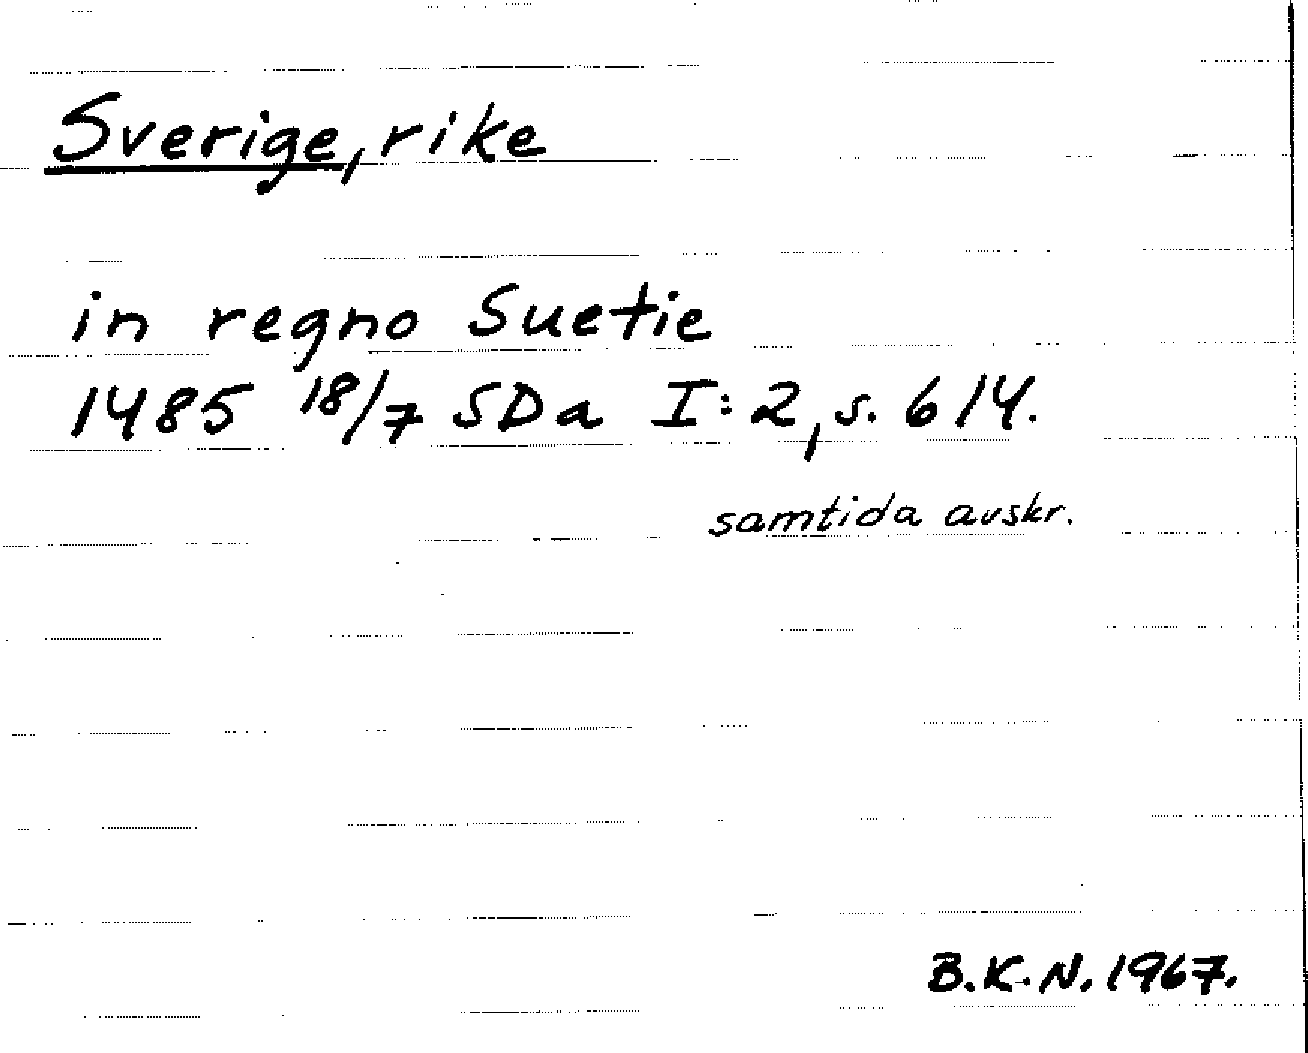 Sverige, rike
in regno Suetie
1485 18/7 SDa I:2, s. 614.
samtida avskr.
B.K.N. 1967.